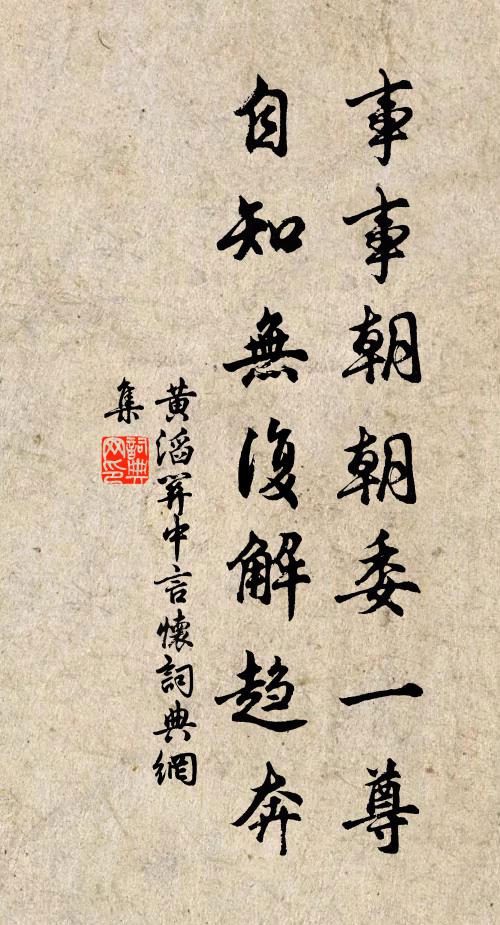 事事朝朝委一尊
自知無復解趨奔
黄滔関中言懷詞典網
集
詞典
网印